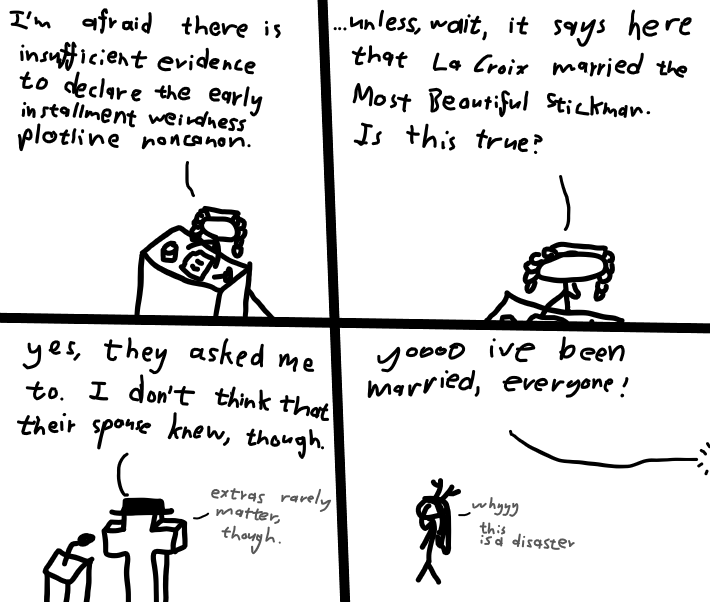 I'm afraid there is
insufficient evidence
to declare the early
installment weirdness
plotline noncanon.
...unless, wait, it says here
that La Croix married the
Most Beautiful Stickman.
Is this true?
yes, they asked me
to. I don't think that
their spouse knew, though.
extras rarely
matter,
though.
yoooo ive been
married, everyone!
whyyy
this
is a disaster